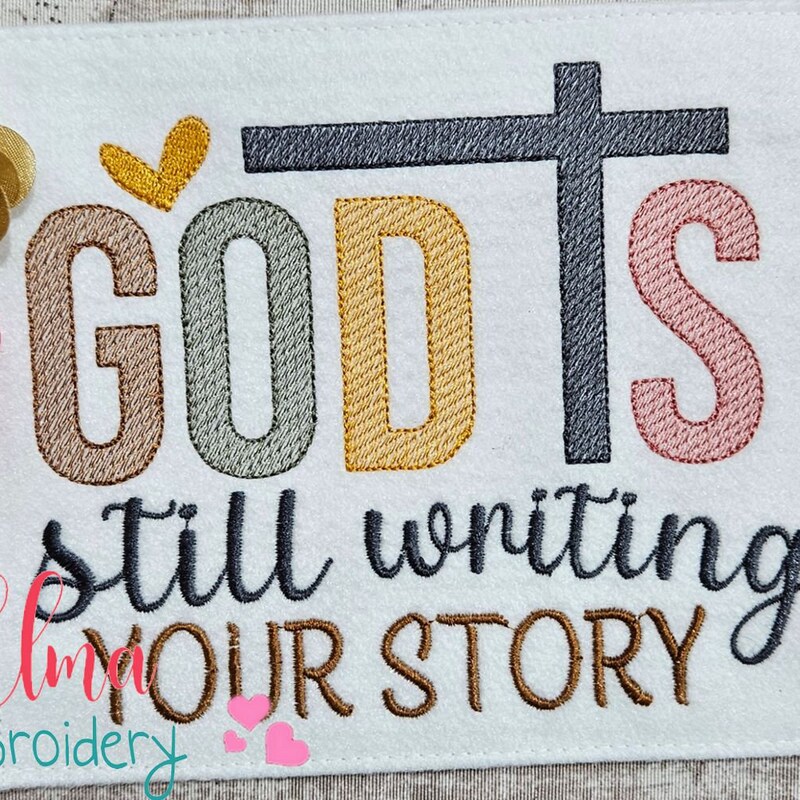 GOD IS
still writing
YOUR STORY
Elma
broidery